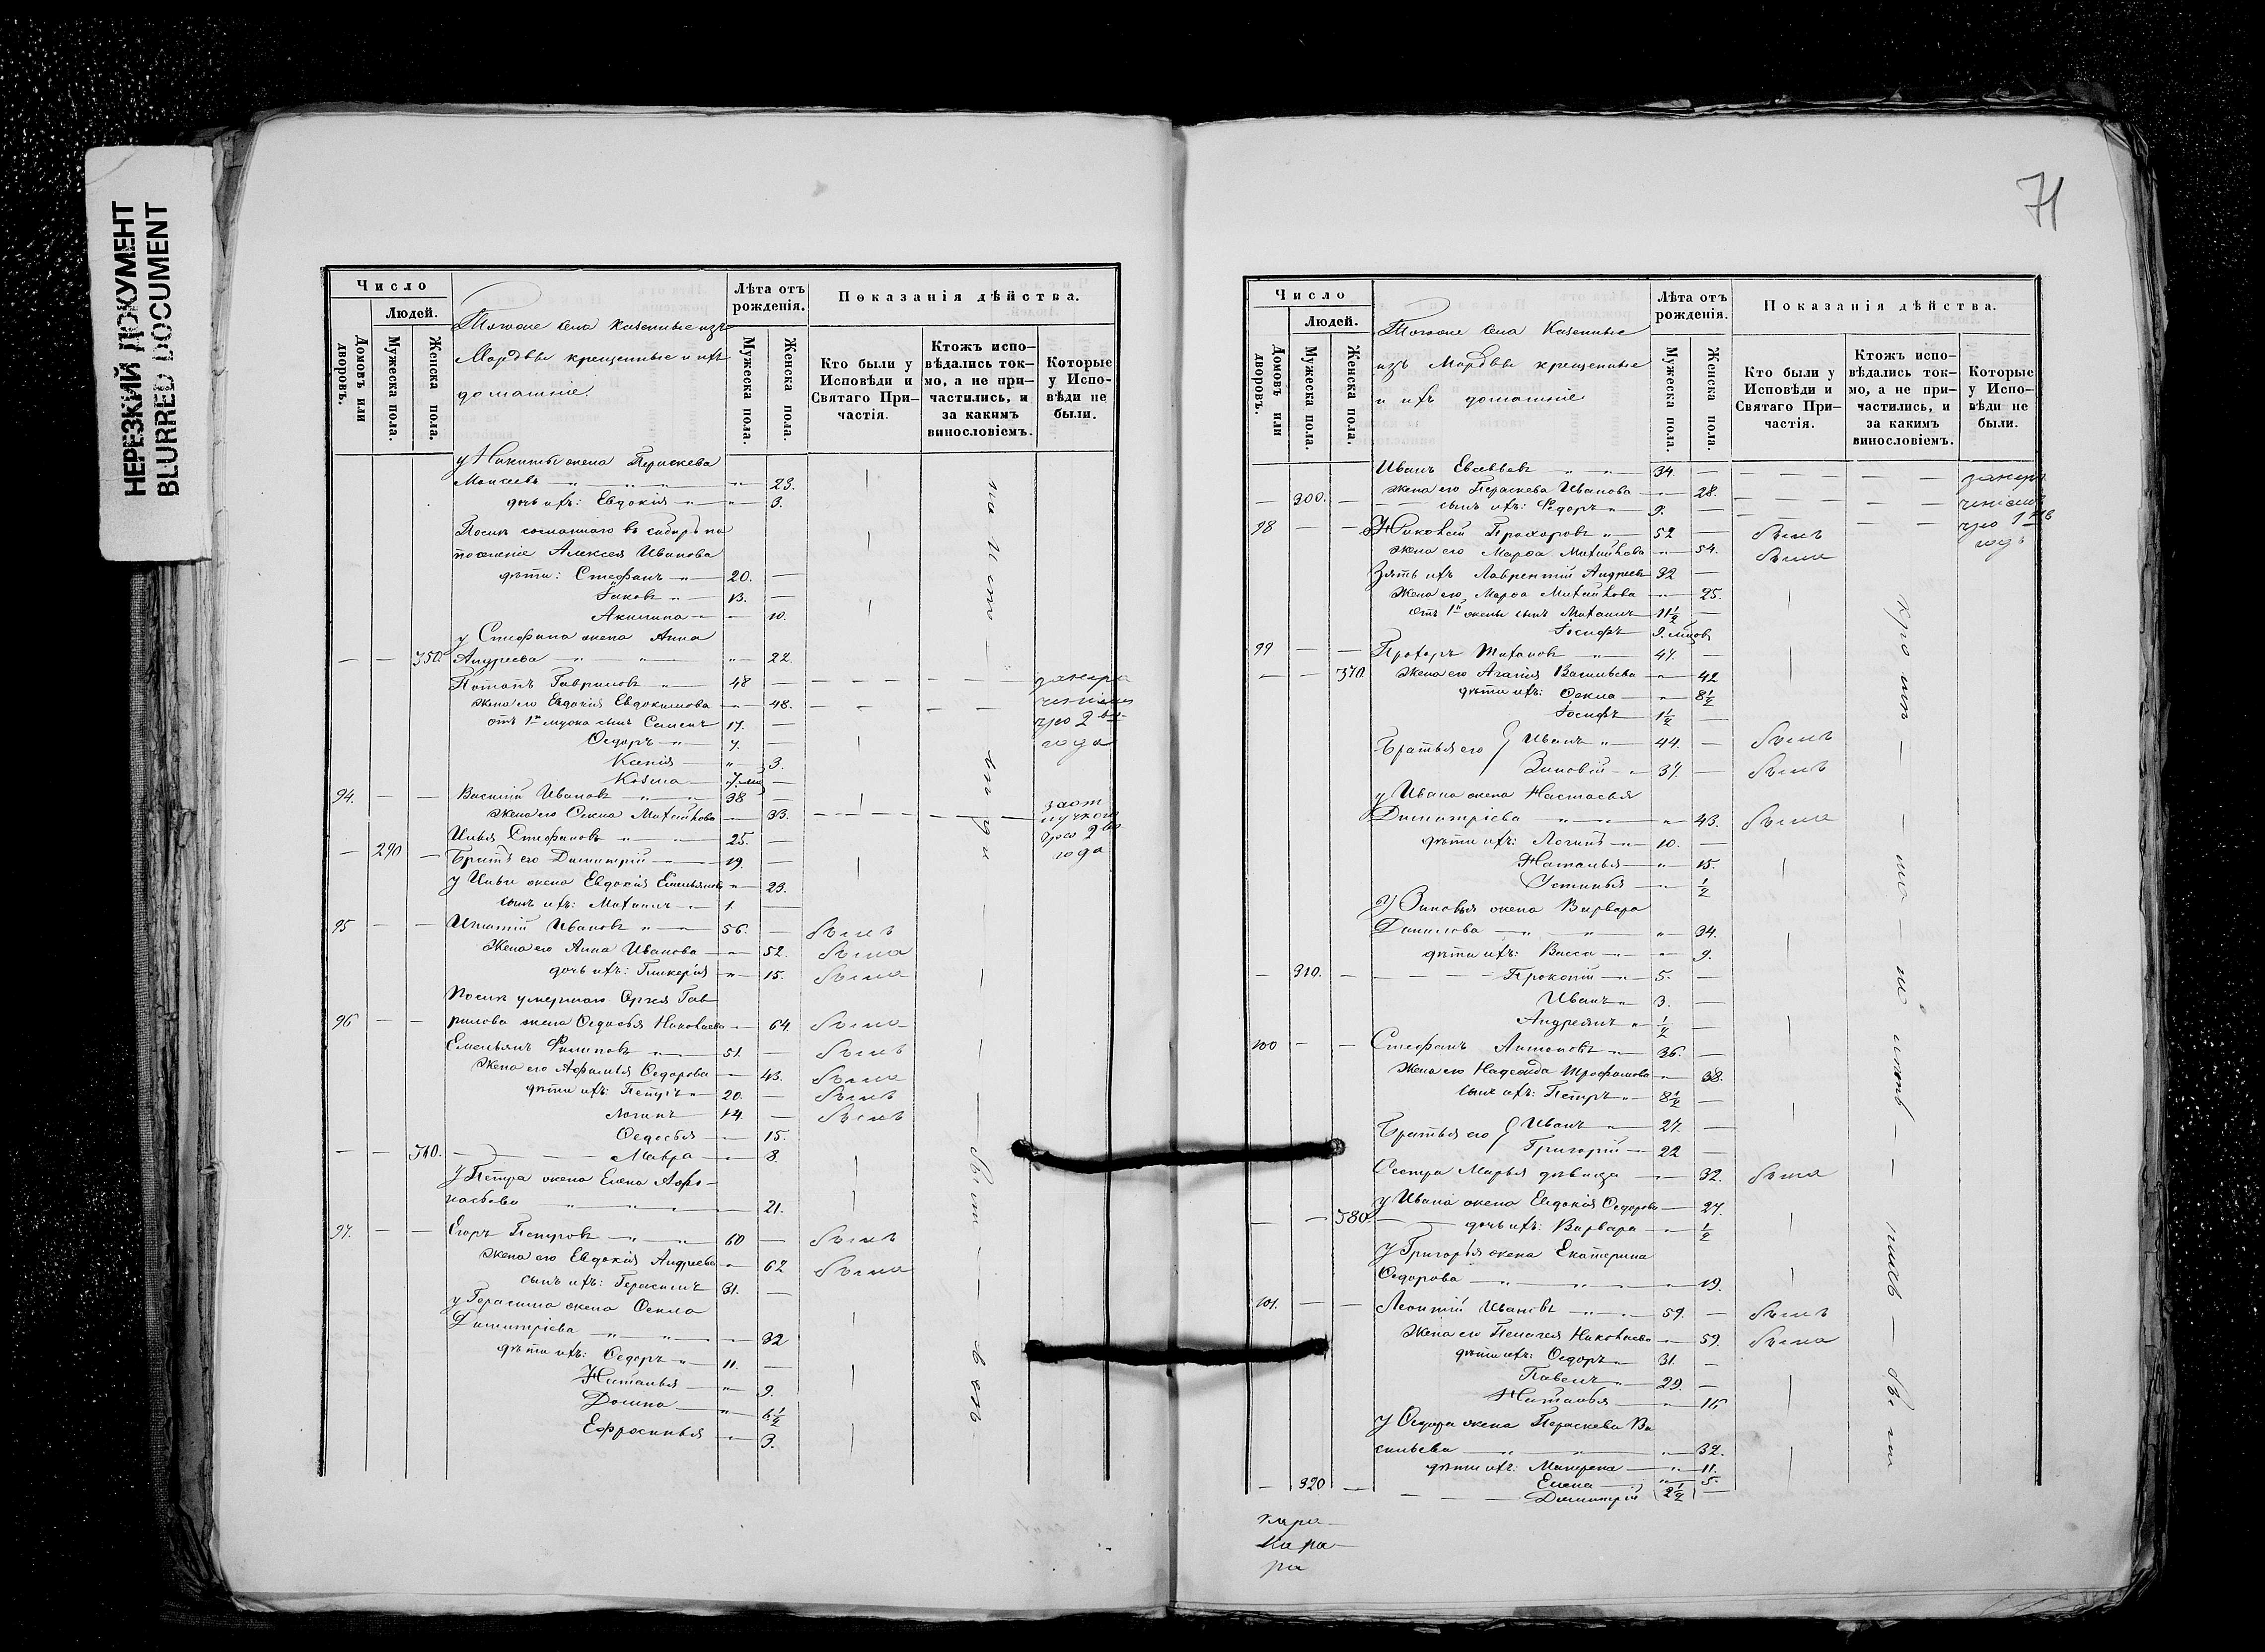 НЕРЕЗКИЙ ДОКУМЕНТ
BLURRED DOCUMENT
Число
Людей.
Домовъ или дворовъ.
Мужеска пола.
Женска пола.
Тогоже села казенные изъ
Мордвы крещенные и ихъ
домашніе.
Лѣта отъ рожденія.
Мужеска пола.
Женска пола.
Показанія дѣйства.
Кто были у Исповѣди и Святаго При-частія.
Ктожъ испо-вѣдались ток-мо, а не при-частились, и за какимъ винословіемъ.
Которые у Испо-вѣди не были.
у Никиты жена Параскева
Моисеева " 23.
дочь ихъ: Евдокія " 3.
Послѣ сосланнаго въ сибирь на
поселеніе Алексея Иванова
дѣти: Стефанъ " 20. —
Іаковъ " 13. —
Акилина — 10.
у Стефана жена Анна
— — 350. Андреева " 22.
Потапъ Гавриловъ " 48 —
жена его Евдокія Евдокимова " 48.
отъ 1го мужа сынъ Семенъ 17. —
Ѳедоръ " 7. —
Ксенія " 3.
Козма —
94. — — Василій Ивановъ " 38 —
жена его Ѳекла Михайлова — 33.
Илья Стефановъ " 25. —
— 290 — Братъ его Димитрій 19. —
у Ильи жена Евдокія Емельянова " 23.
сынъ ихъ: Михаилъ 1. —
95 — — Игнатій Ивановъ " 56. — былъ
Жена его Анна Иванова — 52. была
дочь ихъ: Гликерія " 15. была
Послѣ умершаго Сергея Гав-
96 — — рилова жена Ѳедосья Николаева — 64. была
Емельянъ Филиповъ " 51. — былъ
Жена его Афимья Ѳедорова — 43. была
дѣти ихъ: Петръ " 20. — былъ
Логинъ 14 — былъ
Ѳедосья — 15.
— — 360. Мавра — 8.
у Петра жена Елена Афо-
насьева " 21.
97. — — Егоръ Петровъ " 60 — былъ
жена его Евдокія Андреева — 62 была
сынъ ихъ: Герасимъ 31. —
у Герасима жена Ѳекла
Димитріева — 32
дѣти ихъ: Ѳедоръ " 11. —
Наталья " 9.
Домна " 6½
Ефросинья " 3.
71
Число
Людей.
Домовъ или дворовъ.
Мужеска пола.
Женска пола.
Тогоже села Казенные
изъ Мордвы крещенные
и ихъ домашніе
Лѣта отъ рожденія.
Мужеска пола.
Женска пола.
Показанія дѣйства.
Кто были у Исповѣди и Святаго При-частія.
Ктожъ испо-вѣдались ток-мо, а не при-частились, и за какимъ винословіемъ.
Которые у Испо-вѣди не были.
Иванъ Евсевьевъ " 34. —
— 300. — жена его Параскева Иванова — 28.
сынъ ихъ: Ѳедоръ " 9. —
98 — — Николай Прохоровъ " 52 — былъ
жена его Марѳа Михайлова " 54. была
Зять ихъ Лаврентій Андреевъ 32 —
Жена его Марѳа Михайлова " 25.
отъ 1й жены сынъ Михаилъ 11½ —
Іосифъ 9. мцовъ
99 — — Прохоръ 47. —
— — 370 Жена его Агапія Васильева " 42
дѣти ихъ: Ѳекла " 8½
Іосифъ 1½ —
Братья его { Иванъ " 44. — былъ
Зиновій " 37. — былъ
у Ивана жена Настасья
Димитріева " 43. была
дѣти ихъ: Логинъ 10. —
Наталья " 15.
Устинья — ½
у Зиновья жена Варвара
Данилова " 34.
дѣти ихъ: Васса — 9.
— 310. — Прокопій " 5. —
Иванъ " 3. —
Андреянъ " ½ —
100 — — Стефанъ Антоновъ " 36. —
Жена его Надежда Трофимова " 38.
сынъ ихъ: Петръ " 8½ —
Братья его { Иванъ " 27. —
Григорій — 22 —
Сестра Марья дѣвица — 32. была
у Ивана жена Евдокія Ѳедорова — 27.
— — 380. дочь ихъ: Варвара " ½
у Григорья жена Екатерина
Ѳедорова " 19.
101. — — Леонтій Ивановъ " 59. — былъ
Жена его Пелагея Николаева " 59. была
дѣти ихъ: Ѳедоръ " 31. —
Павелъ " 29. —
Наталья "
у Ѳедора жена Параскева Ва
сильева " 32.
дѣти ихъ: Матрена — 11.
Елена " 5.
— 320 — Димитрій 2½ —